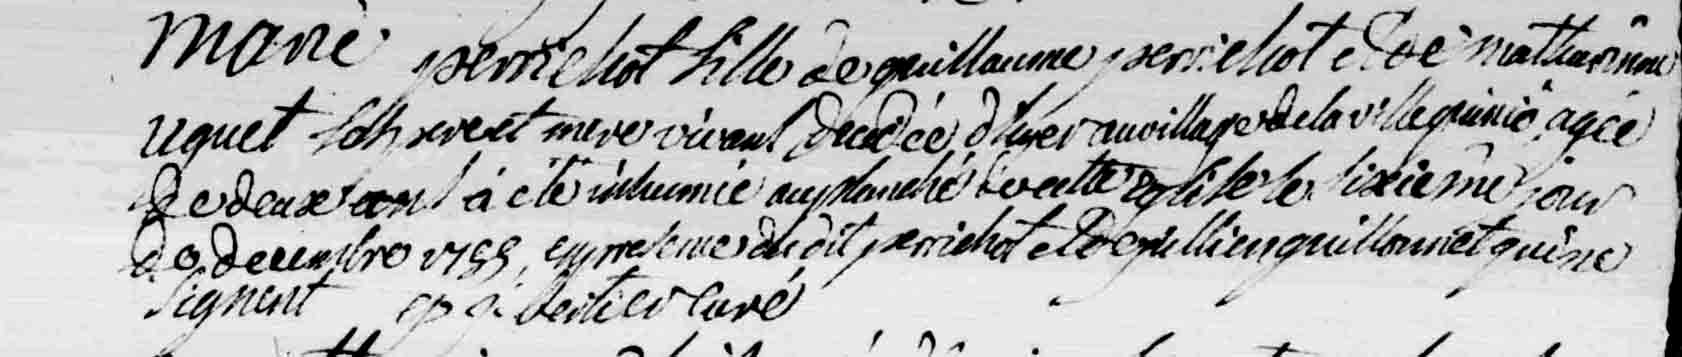 Marie perrichot fille de guillaume perrichot et de matharinne
uguet ses pere et mere vivant decedée d'hyer au village de la ville quinio agée
de deux ans à été inhumée au planché de cette eglise le sixieme jour
de decembre 1755, en presence du dit perrichot et de jullien guilloume et qui ne
signent p g berthier curé